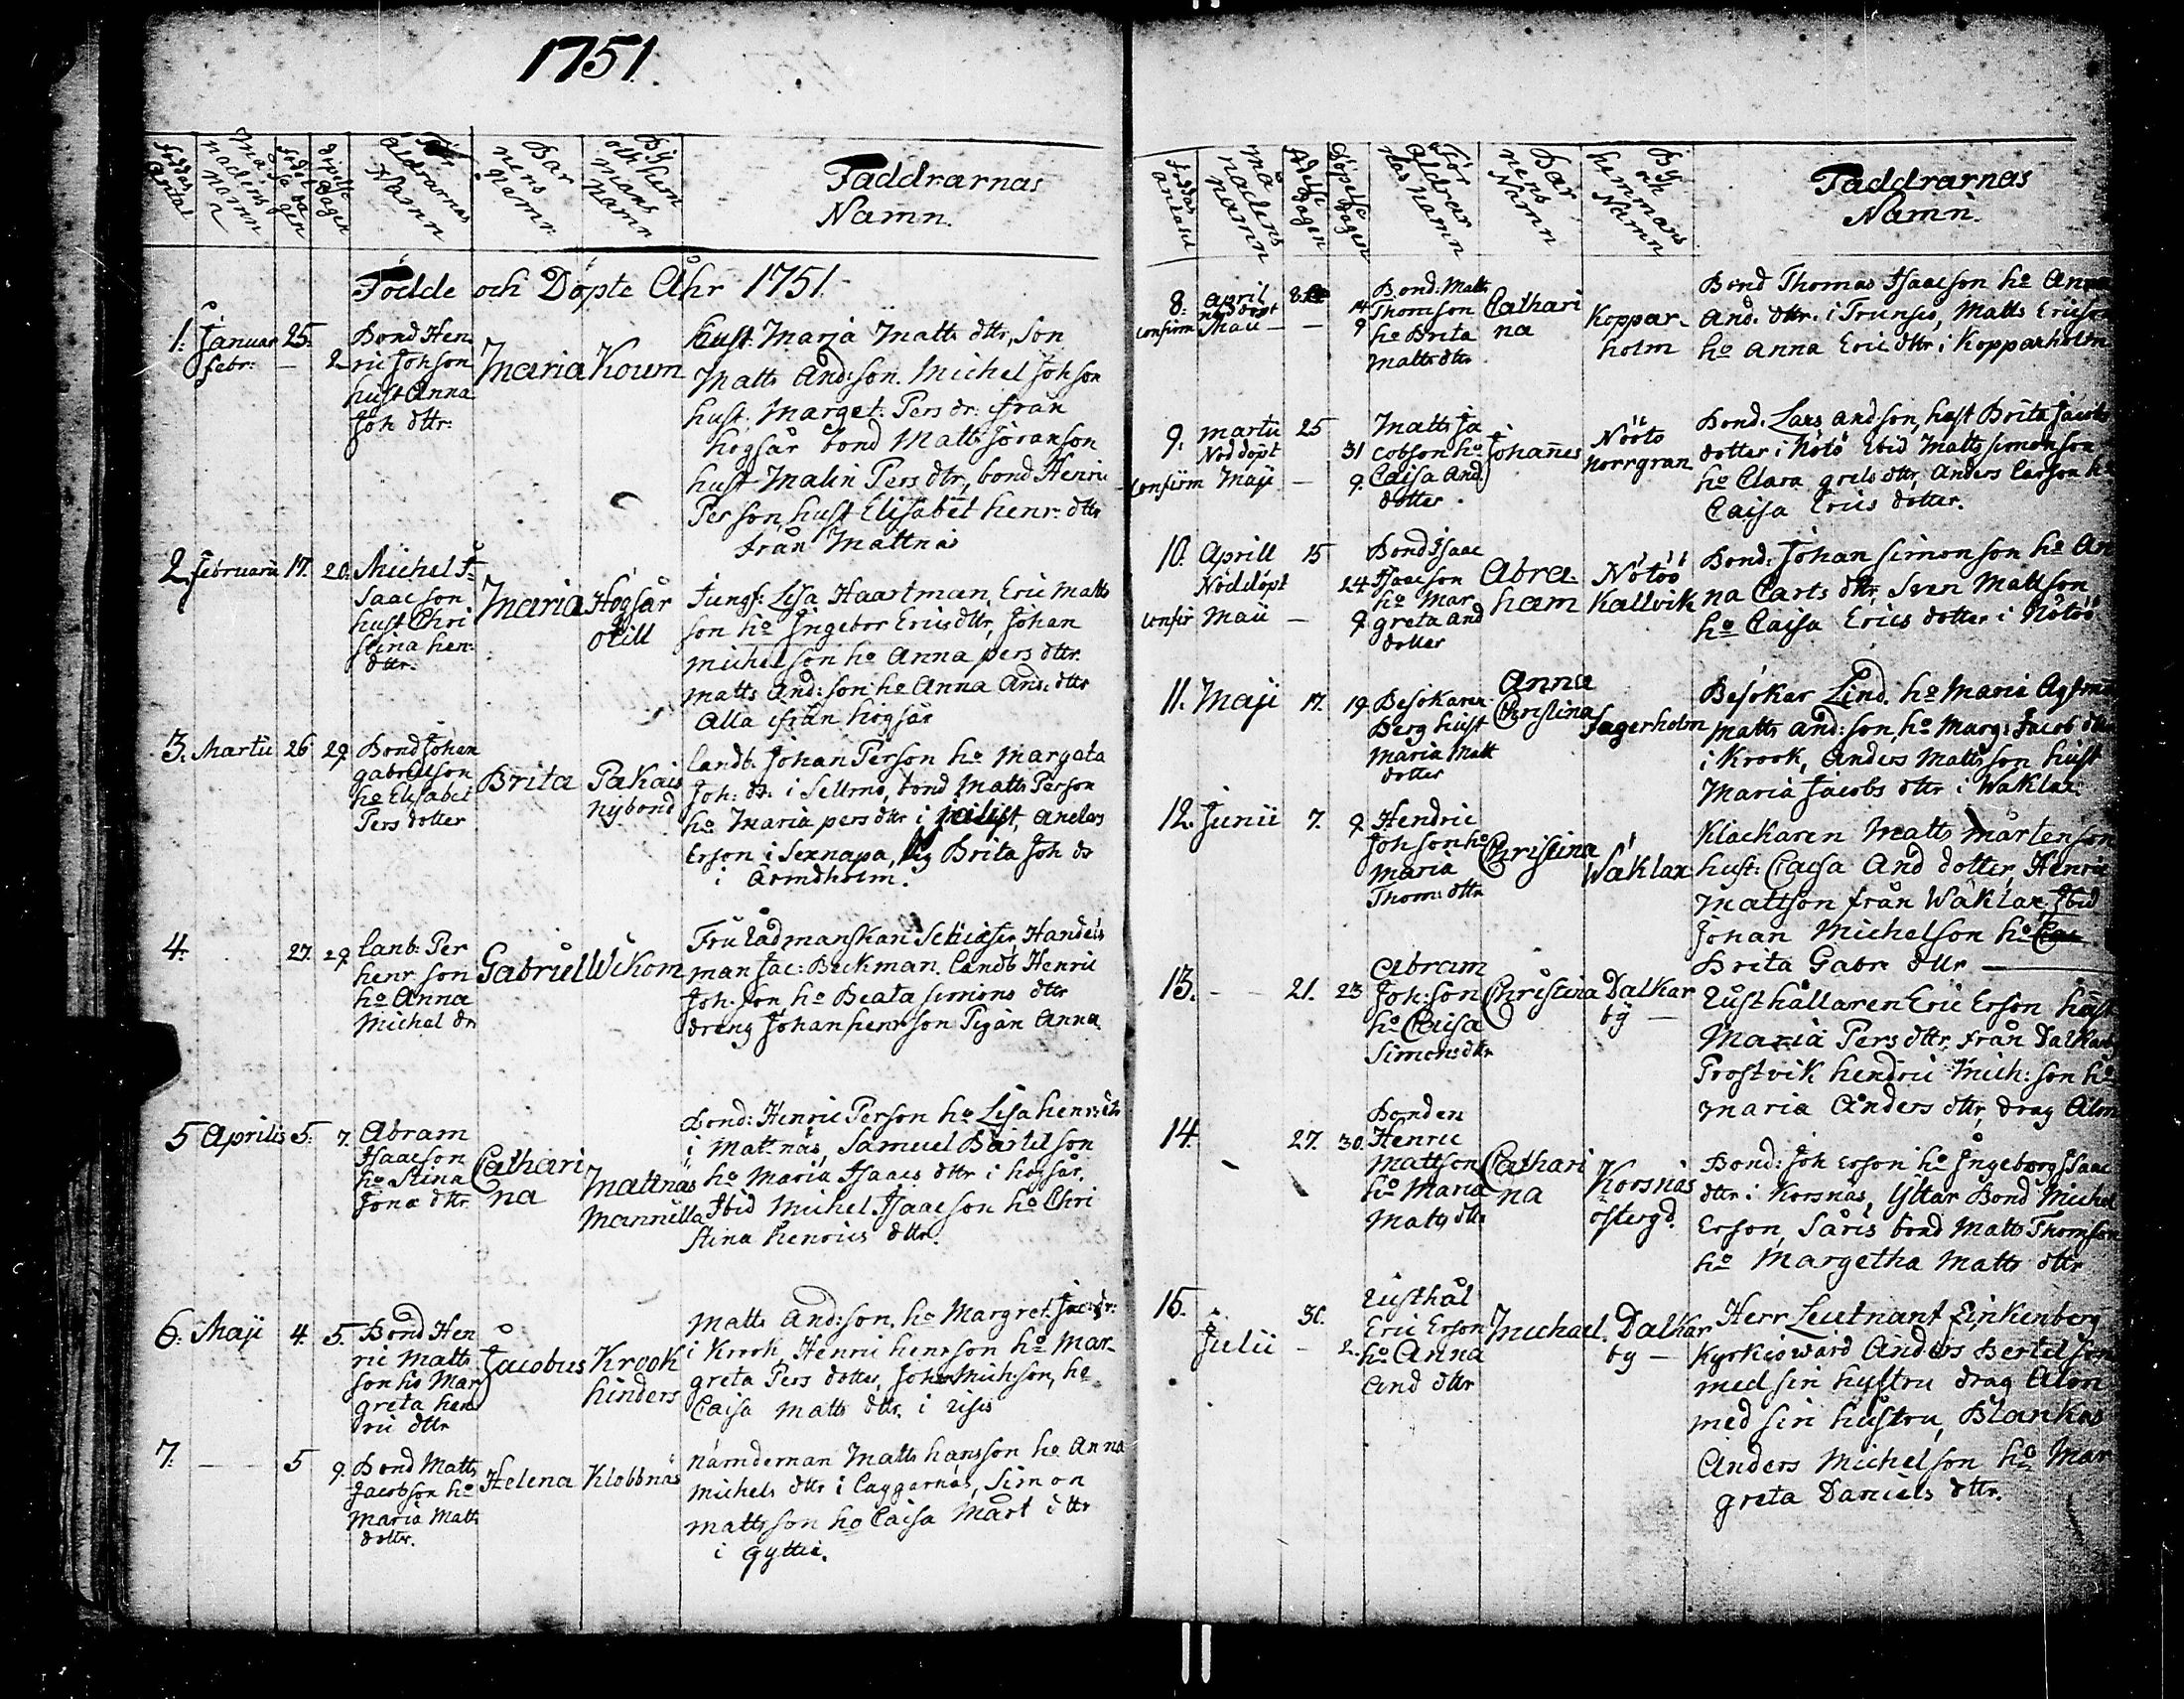 1751.
Födes
Antal
Må
nadens
Namn
Födel
se da
gen
Döpelse
Dagen
För
äldrarnas
Namn
Bar
nens
Namn
By
och hem
mans
Namn
Faddrarnas
Namn.
Födde och Döpte Åhr 1751.
1. Januar 25.
febr: — 2
Bond Hen
ric Johson
hust Anna
Joh dttr
Maria
Koum
hust. Maria Matts dttr, son
Matts And:son. Michel Johson
hust. Marget. Pers dr: ifrån
högsår bond Matts Jöranson
hust Malin Pers dtr, bond Henric
Person, hust Elisabet henr: dttr
från Mattnäs
2. Februarii 17. 20.
Michel I
saacson
hust Chri
stina hen:
dttr.
Maria
Högsår
otill
Jungf: Lisa Haartman, Eric Matts
son ho Ingebor Erics dttr, Johan
michelson ho Anna pers dttr.
Matts And:son ho Anna And: dttr
Alla ifrån högsår
3. Martii 26 29.
Bond Johan
gabrielson
ho Elisabet
Pers dotter
Brita
Pakais
nybond
landb. Johan Person ho Margata
Joh: dr. i Sellmo, bond Matts Person
ho Maria pers dttr i, Anders
Erson i Sexnapa, Brita Joh dr
i Armdholm.
4. 27. 29.
lanb. Per
henr son
ho Anna
Michel dr
Gabriel
Wikom
Fru Rådmanskan, Handels
man Jac: Beckman. landb Henric
Joh: son, ho Beata simons dttr
dreng Johan henrson Pigan Anna
5 Aprilis 5. 7.
Abram
Isaacson
ho Stina
Jona dttr
Cathari
na
Mattnäs
Mannilla
Bond: Henric Person ho Lisa henr: dtr
i Mattnäs, Samuel Bärtelson
ho Maria Isaacs dttr i högsår.
Ibid Michel Isaacson ho Chri
stina Henrics dttr.
6. Maji 4. 5.
Bond Hen
ric Matts
son ho Mar
greta hen
ric dttr
Jacobus
Krook
hinders
Matts And:son, ho Margret. Jac: dr:
i Krook, Henric henrson ho Mar-
greta Pers dotter, Joh Mich:son, ho
Caisa Matts dttr. i risis
7. — 5 9.
Bond Matts
Jacobson ho
Maria Matts
dotter.
Helena
Klobbnäs
nämdeman Matts hansson ho Anna
Michels dttr i Laggarnäs, Simon
mattsson ho Caisa Mårt dttr
i gyttie.
Födas
antal
Må
nadens
Namn
Födelse
dagen
Döpelse
dagen
För
äldrar
nas Namn
Bar
nens
Namn
By
och
hemmans
Namn
Faddrarnas
Namn.
8. April 8.
nöddopt 14
confirm Maii — — 9
Bond: Matts
Thomson
ho Brita
Matts dtr
Cathari
na
Koppar-
holm
Bond Thomas Isaacson ho Anna
And. dttr. i Trunsö, Matts Ericson
ho Anna Eric dttr i Kopparholm
9. Martii 25
Nöddöpt 31
confirm Maji — 9.
Matts Ja
cobson ho
Caisa And.
dotter.
Johannes
Nöötö
norrgran
Bond. Lars andson, hust Brita Jacobs
dotter i Nötö Ibid Matts simonson
ho Clara grels dttr, Anders Larson ho
Caisa Erics dotter.
10. Aprill 15
Nöddöpt 24
confir Maii — 9.
Bond Isaac
Isaacson
ho Mar
greta and
dotter
Abra-
ham
Nötöö
Kallvik
Bond: Johan Simonson ho An
na Carls dttr, Sven Mattson
ho Caisa Erics dotter i Nötöö
11. Maji 17. 19.
Besökaren
Berg hust
Maria Matt
dotter
Anna
Christina
Fagerholm
Besökar Lind. ho Maria
Matts and:son, ho Marg: Jacob dttr
i Krook, Anders Mattsson hust
Maria Jacobs dttr i Waklax.
12. Junii 7. 9
Hendric
Johson ho
Maria
Thom: dttr
Christina
Waklax
Klackaren Matts Mårtenson
hust: Caisa And dotter, Henric
Mattson från Wäklax, Ibid
Johan Michelson ho
Brita Gabr dttr —
13. — — 21. 23
Abram
Joh:son
ho Caisa
Simons dttr
Christina
Dalkar
by —
Rusthållaren Eric Erson hust
Maria Pers dttr, från Dalkarby
Prostvik hendric Mich: son ho
Maria Anders dttr, drag Alm
14. 27. 30.
Bonden
Henric
Mattson
ho Maria
Mats dttr
Cathari
na
Korsnäs
östergd
Bond: Joh Erson ho Ingeborg Isaac
dttr i Korsnäs, Yttar Bond Michel
Erson, Säris bond Matts Thomson
ho Margetha Matts dttr
15. 30.
Julii — 2.
Rusthål
Eric Erson
ho Anna
And dttr
Michael.
Dalkar
by —
Herr Leutnant Finkenberg
Kyrkiowärd Anders Bertelson
med sin hustru drag Alm
med sin hustru, Blankas
Anders Michelson ho Mar
greta Daniels dttr.